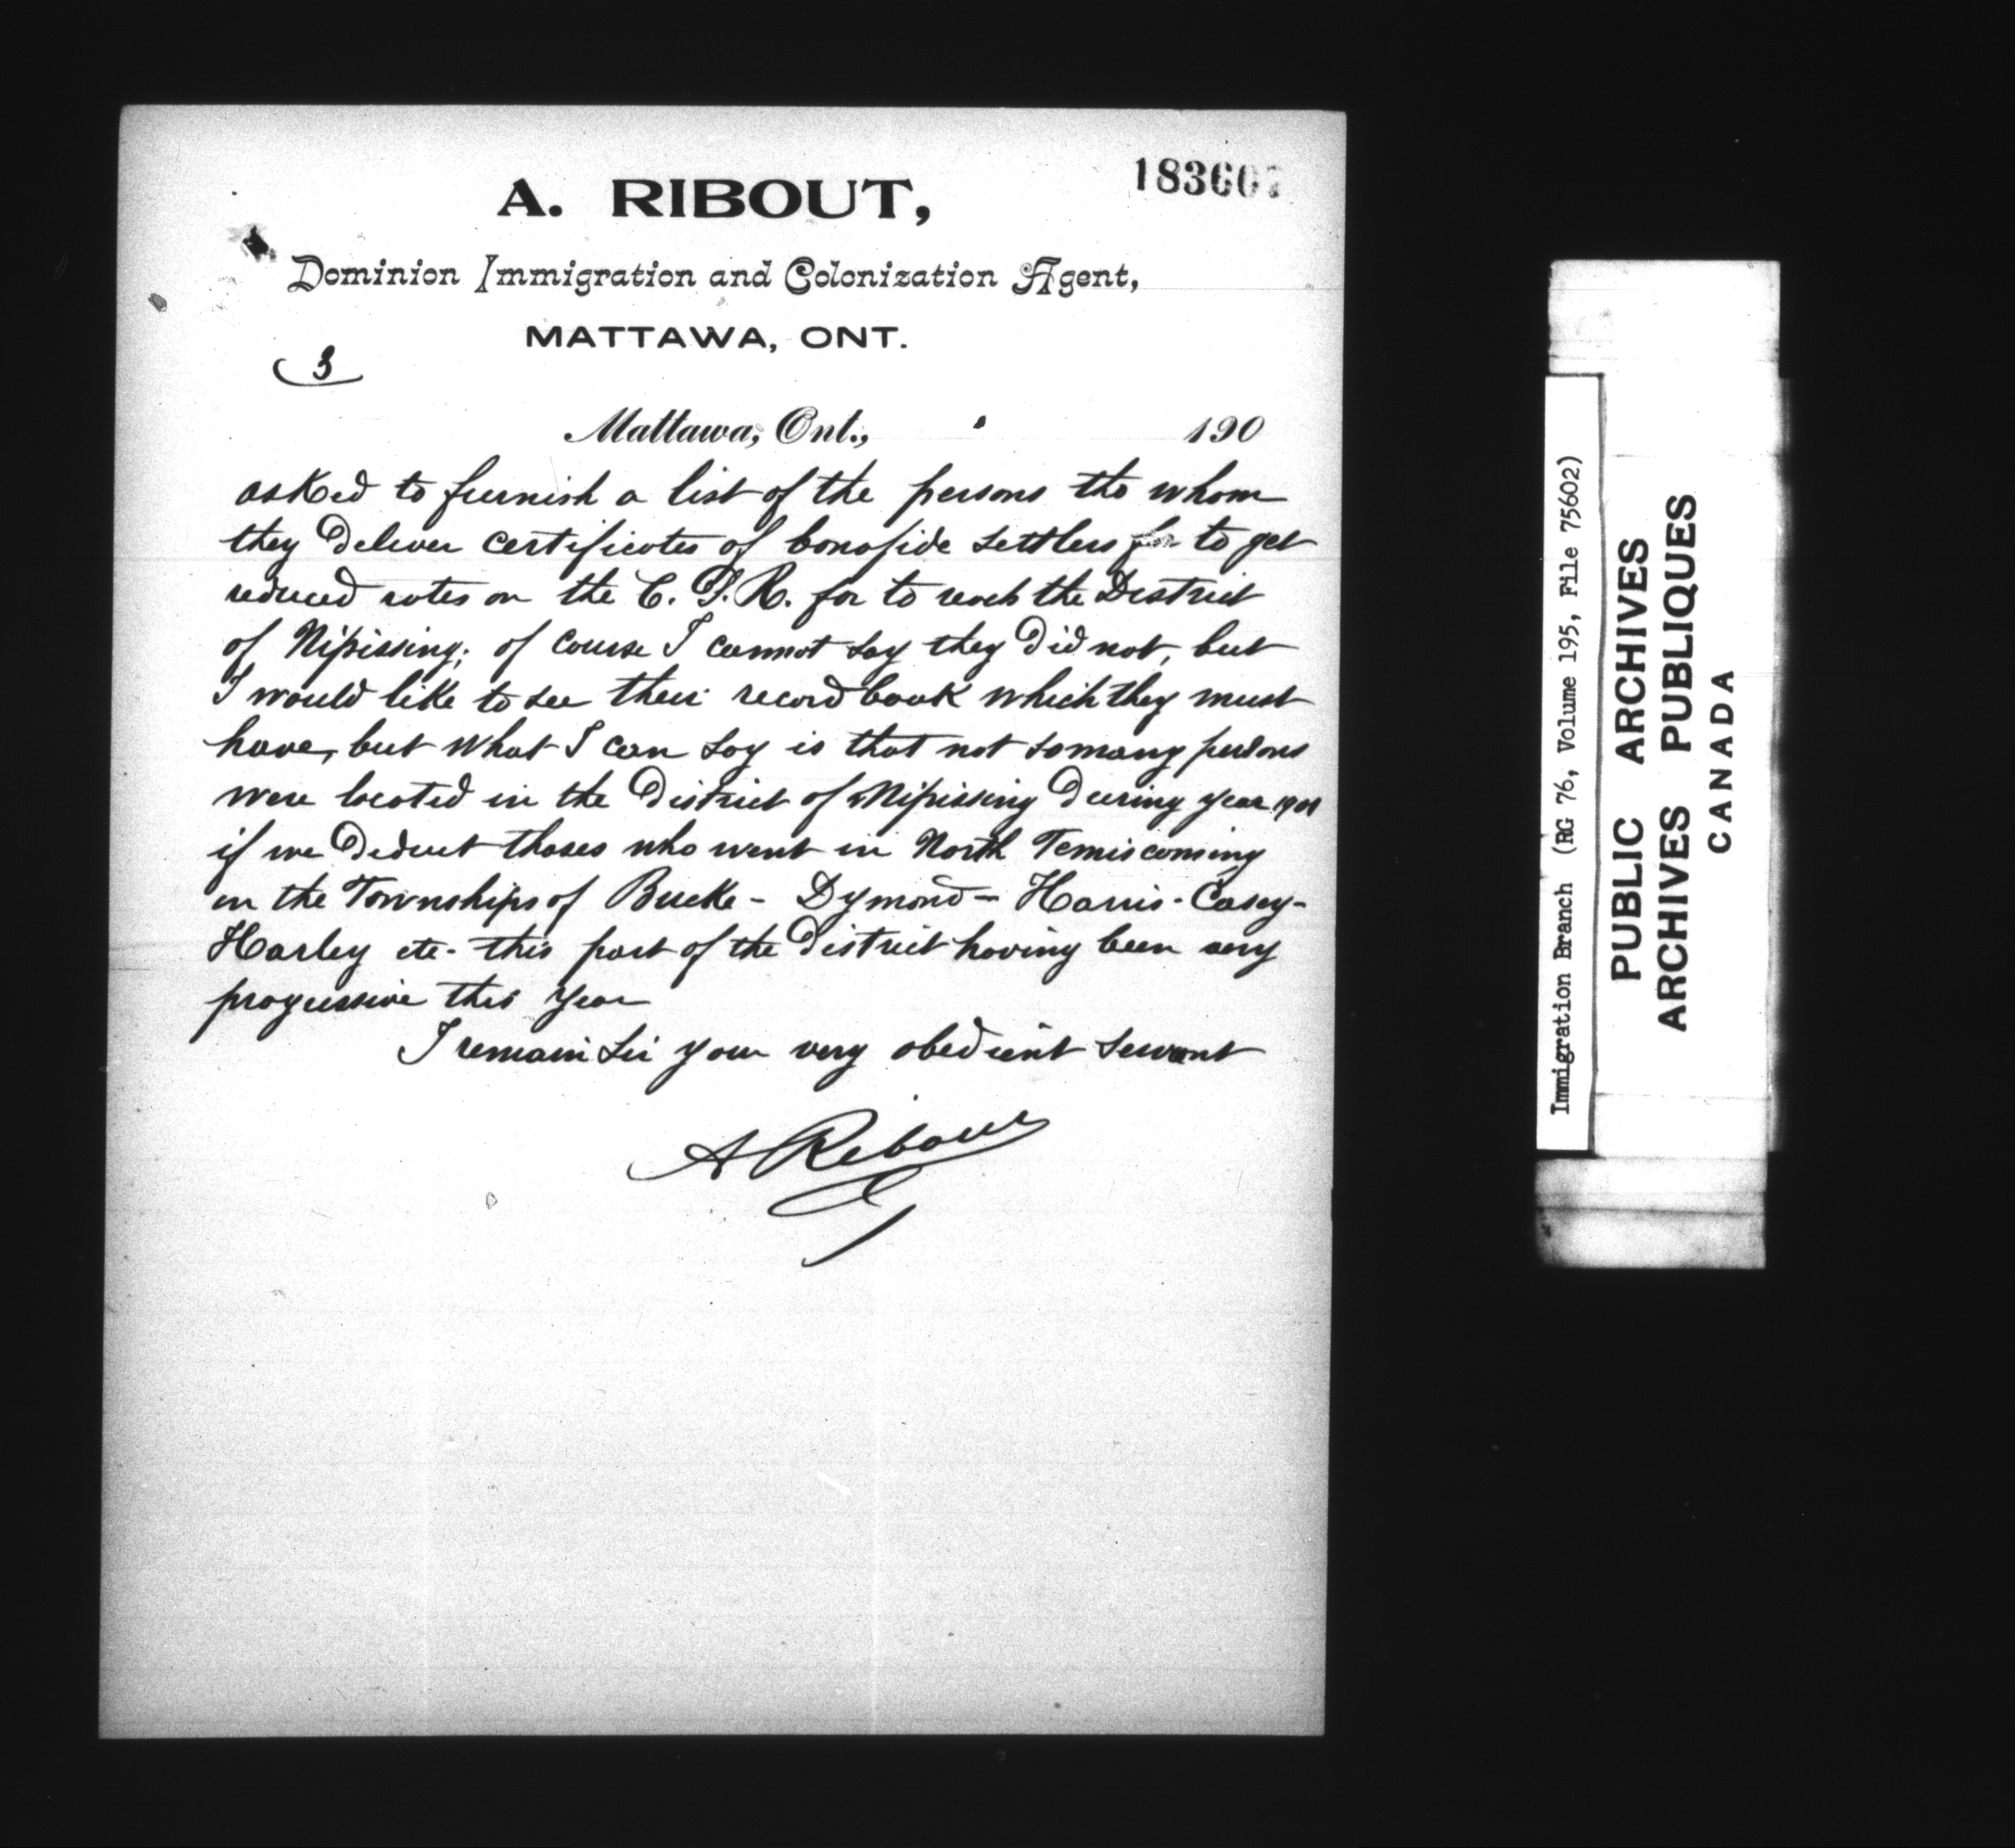 183607
A. RIBOUT,
Dominion Immigration and Colonization Agent,
MATTAWA, ONT.
3
Mattawa, Ont., 190
asked to furnish a list of the persons tho whom
they deliver certificates of bonafide settlers for to get
reduced rates on the C. P. R. for to reach the District
of Nipissing; of course I cannot say they did not, but
I would like to see their record book which they must
have, but what I can say is that not so many persons
were located in the district of Nipissing during year 1901
if we deduct thoses who went in North Temiscaming
in the Townships of Bucke - Dymond - Harris - Casey -
Harley etc - this part of the district having been very
progressive this year
I remain Sir your very obedient servant
A Ribout
Immigration Branch (RG 76, Volume 195, File 75602)
PUBLIC ARCHIVES
ARCHIVES PUBLIQUES
CANADA